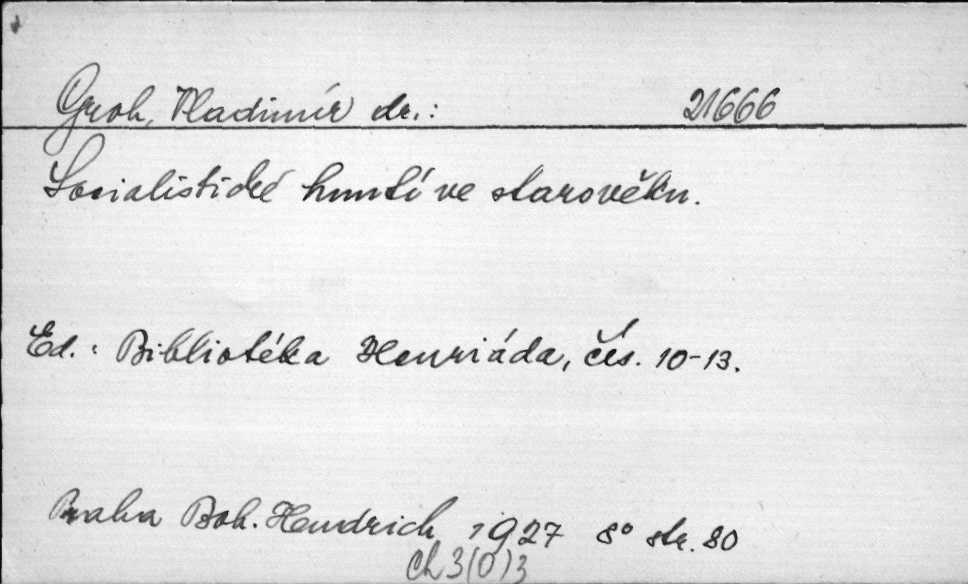 Groh, Vladimír dr.: 21666
Socialistické hnutí ve starověku.
Ed.: Bibliotéka Henriáda, čís. 10-13.
Praha Boh. Hendrich 1927 8° str. 80
Ch 3(0)3